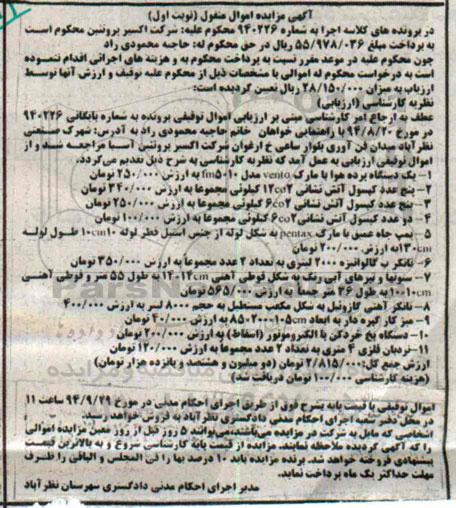 آگهی مزایده اموال منقول (نوبت اول)
در پرونده های کلاسه اجرا به شماره ۹۴۰۲۲۶ محکوم علیه: شرکت اکسیر پروتئین محکوم است
به پرداخت مبلغ ۵۵/۹۷۸/۰۳۶ ریال در حق محکوم له: حاجیه محمودی راد
چون محکوم علیه در موعد مقرر نسبت به پرداخت محکوم به و هزینه های اجرائی اقدام ننموده
است به درخواست محکوم له اموالی با مشخصات ذیل از محکوم علیه توقیف و ارزش آنها توسط
ارزیاب به میزان ۲۸/۱۵۰/۰۰۰ ریال تعیین گردیده است:
نظریه کارشناسی (ارزیابی)
عطف به ارجاع امر کارشناسی مبنی بر ارزیابی اموال توقیفی پرونده به شماره بایگانی ۹۴۰۲۲۶
در مورخ ۹۴/۸/۲۰ با راهنمایی خواهان خانم حاجیه محمودی راد به آدرس: شهرک صنعتی
نظرآباد میدان فن آوری بلوار ساعی خ ارغوان شرکت اکسیر پروتئین آسیا مراجعه شد و از
اموال توقیفی ارزیابی به عمل آمد که نظریه کارشناسی به شرح ذیل تقدیم می گردد.
۱- یک دستگاه پرده هوا با مارک vento مدل fm5010 به ارزش ۲۵۰/۰۰۰ تومان
۲- پنج عدد کپسول آتش نشانی co2 ۱۲ کیلوئی مجموعا به ارزش ۳۴۰/۰۰۰ تومان
۳- پنج عدد کپسول آتش نشانی co2 ۶ کیلوئی مجموعا به ارزش ۲۵۰/۰۰۰ تومان
۴- دو عدد کپسول آتش نشانی co2 ۶ کیلوئی مجموعا به ارزش ۱۰۰/۰۰۰ تومان
۵- پمپ چاه عمیق با مارک pentax به شکل لوله از جنس استیل قطر لوله ۱۰cm طول لوله
۱۳۰cm به ارزش ۲۰۰/۰۰۰ تومان
۶- تانکر پ گالوانیزه ۲۰۰۰ لیتری به تعداد ۲ عدد مجموعا به ارزش ۳۵۰/۰۰۰ تومان
۷- ستونها و تیرهای آبی رنگ به شکل قوطی آهنی ۱۴*۱۴cm به طول ۵۵ متر و قوطی آهنی
۱۰*۱۰cm به طول ۳۶ متر جمعا به ارزش ۵۶۵/۰۰۰ تومان
۸- تانکر آهنی گازوئیل به شکل مکعب مستطیل به حجم ۸۰۰۰ لیتر به ارزش ۴۰۰/۰۰۰
۹- میز کار گیره دار به ابعاد ۱۰۵cm*۲۰۰*۸۵ به ارزش ۴۰/۰۰۰ تومان
۱۰- دستگاه یخ خردکن با الکتروموتور (اسقاط) به ارزش ۲۰۰/۰۰۰ تومان
۱۱- نردبان فلزی ۴ متری به تعداد ۲ عدد مجموعا به ارزش ۱۲۰/۰۰۰ تومان
ارزش جمع کل: ۲/۸۱۵/۰۰۰ تومان (دو میلیون و هشتصد و پانزده هزار تومان)
(هزینه کارشناسی ۱۰۰/۰۰۰ تومان دریافت شد)
اموال توقیفی با قیمت پایه بشرح فوق از طریق اجرای احکام مدنی در مورخ ۹۴/۹/۲۹ ساعت ۱۱
در محل دفتر شعبه اجرای احکام مدنی دادگستری نظرآباد به فروش خواهد رسید.
اشخاصی که مایل به شرکت در مزایده می باشند می توانند ۵ روز قبل از روز معین مزایده اموالی
را که آگهی گردیده ملاحظه نمایند. مزایده از قیمت پایه کارشناسی شروع و به بالاترین قیمت
پیشنهادی فروخته خواهد شد. برنده مزایده باید ۱۰ درصد بها را فی المجلس و الباقی را ظرف
مهلت حداکثر یک ماه پرداخت نماید.
مدیر اجرای احکام مدنی دادگستری شهرستان نظرآباد